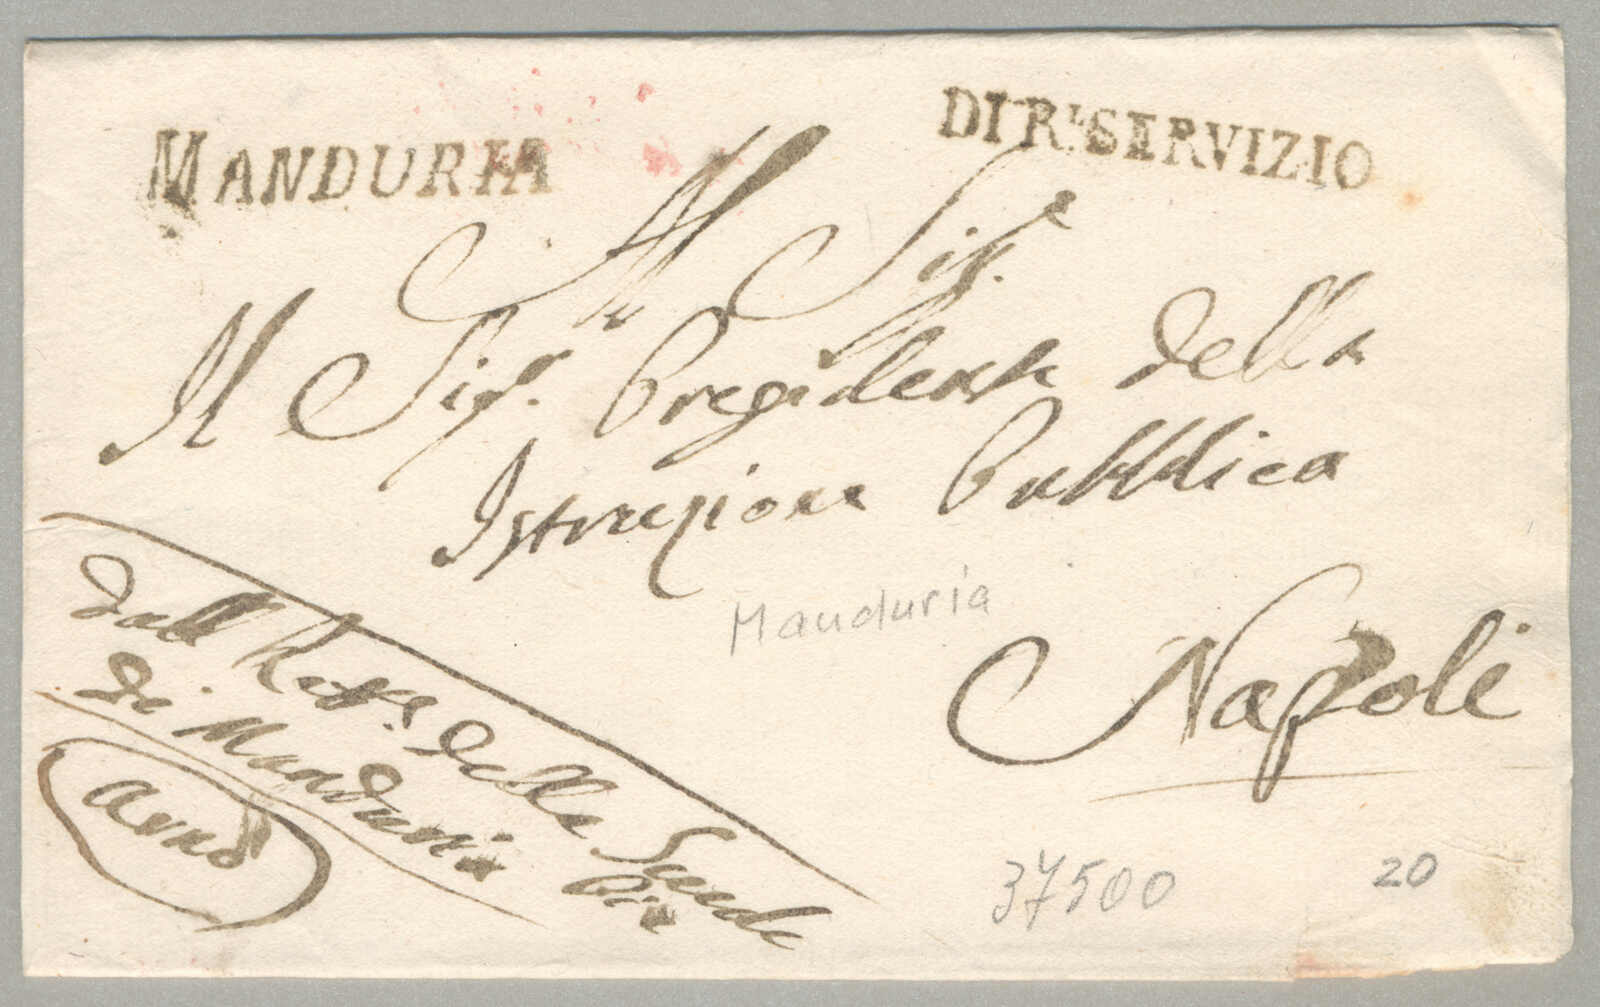 MANDURIA
DI R.l SERVIZIO
A Sig.e
Il Sig. Presidente della
Istruzione Pubblica
Manduria
Napoli
dall della Scuole
di Manduria Pie
37500
20